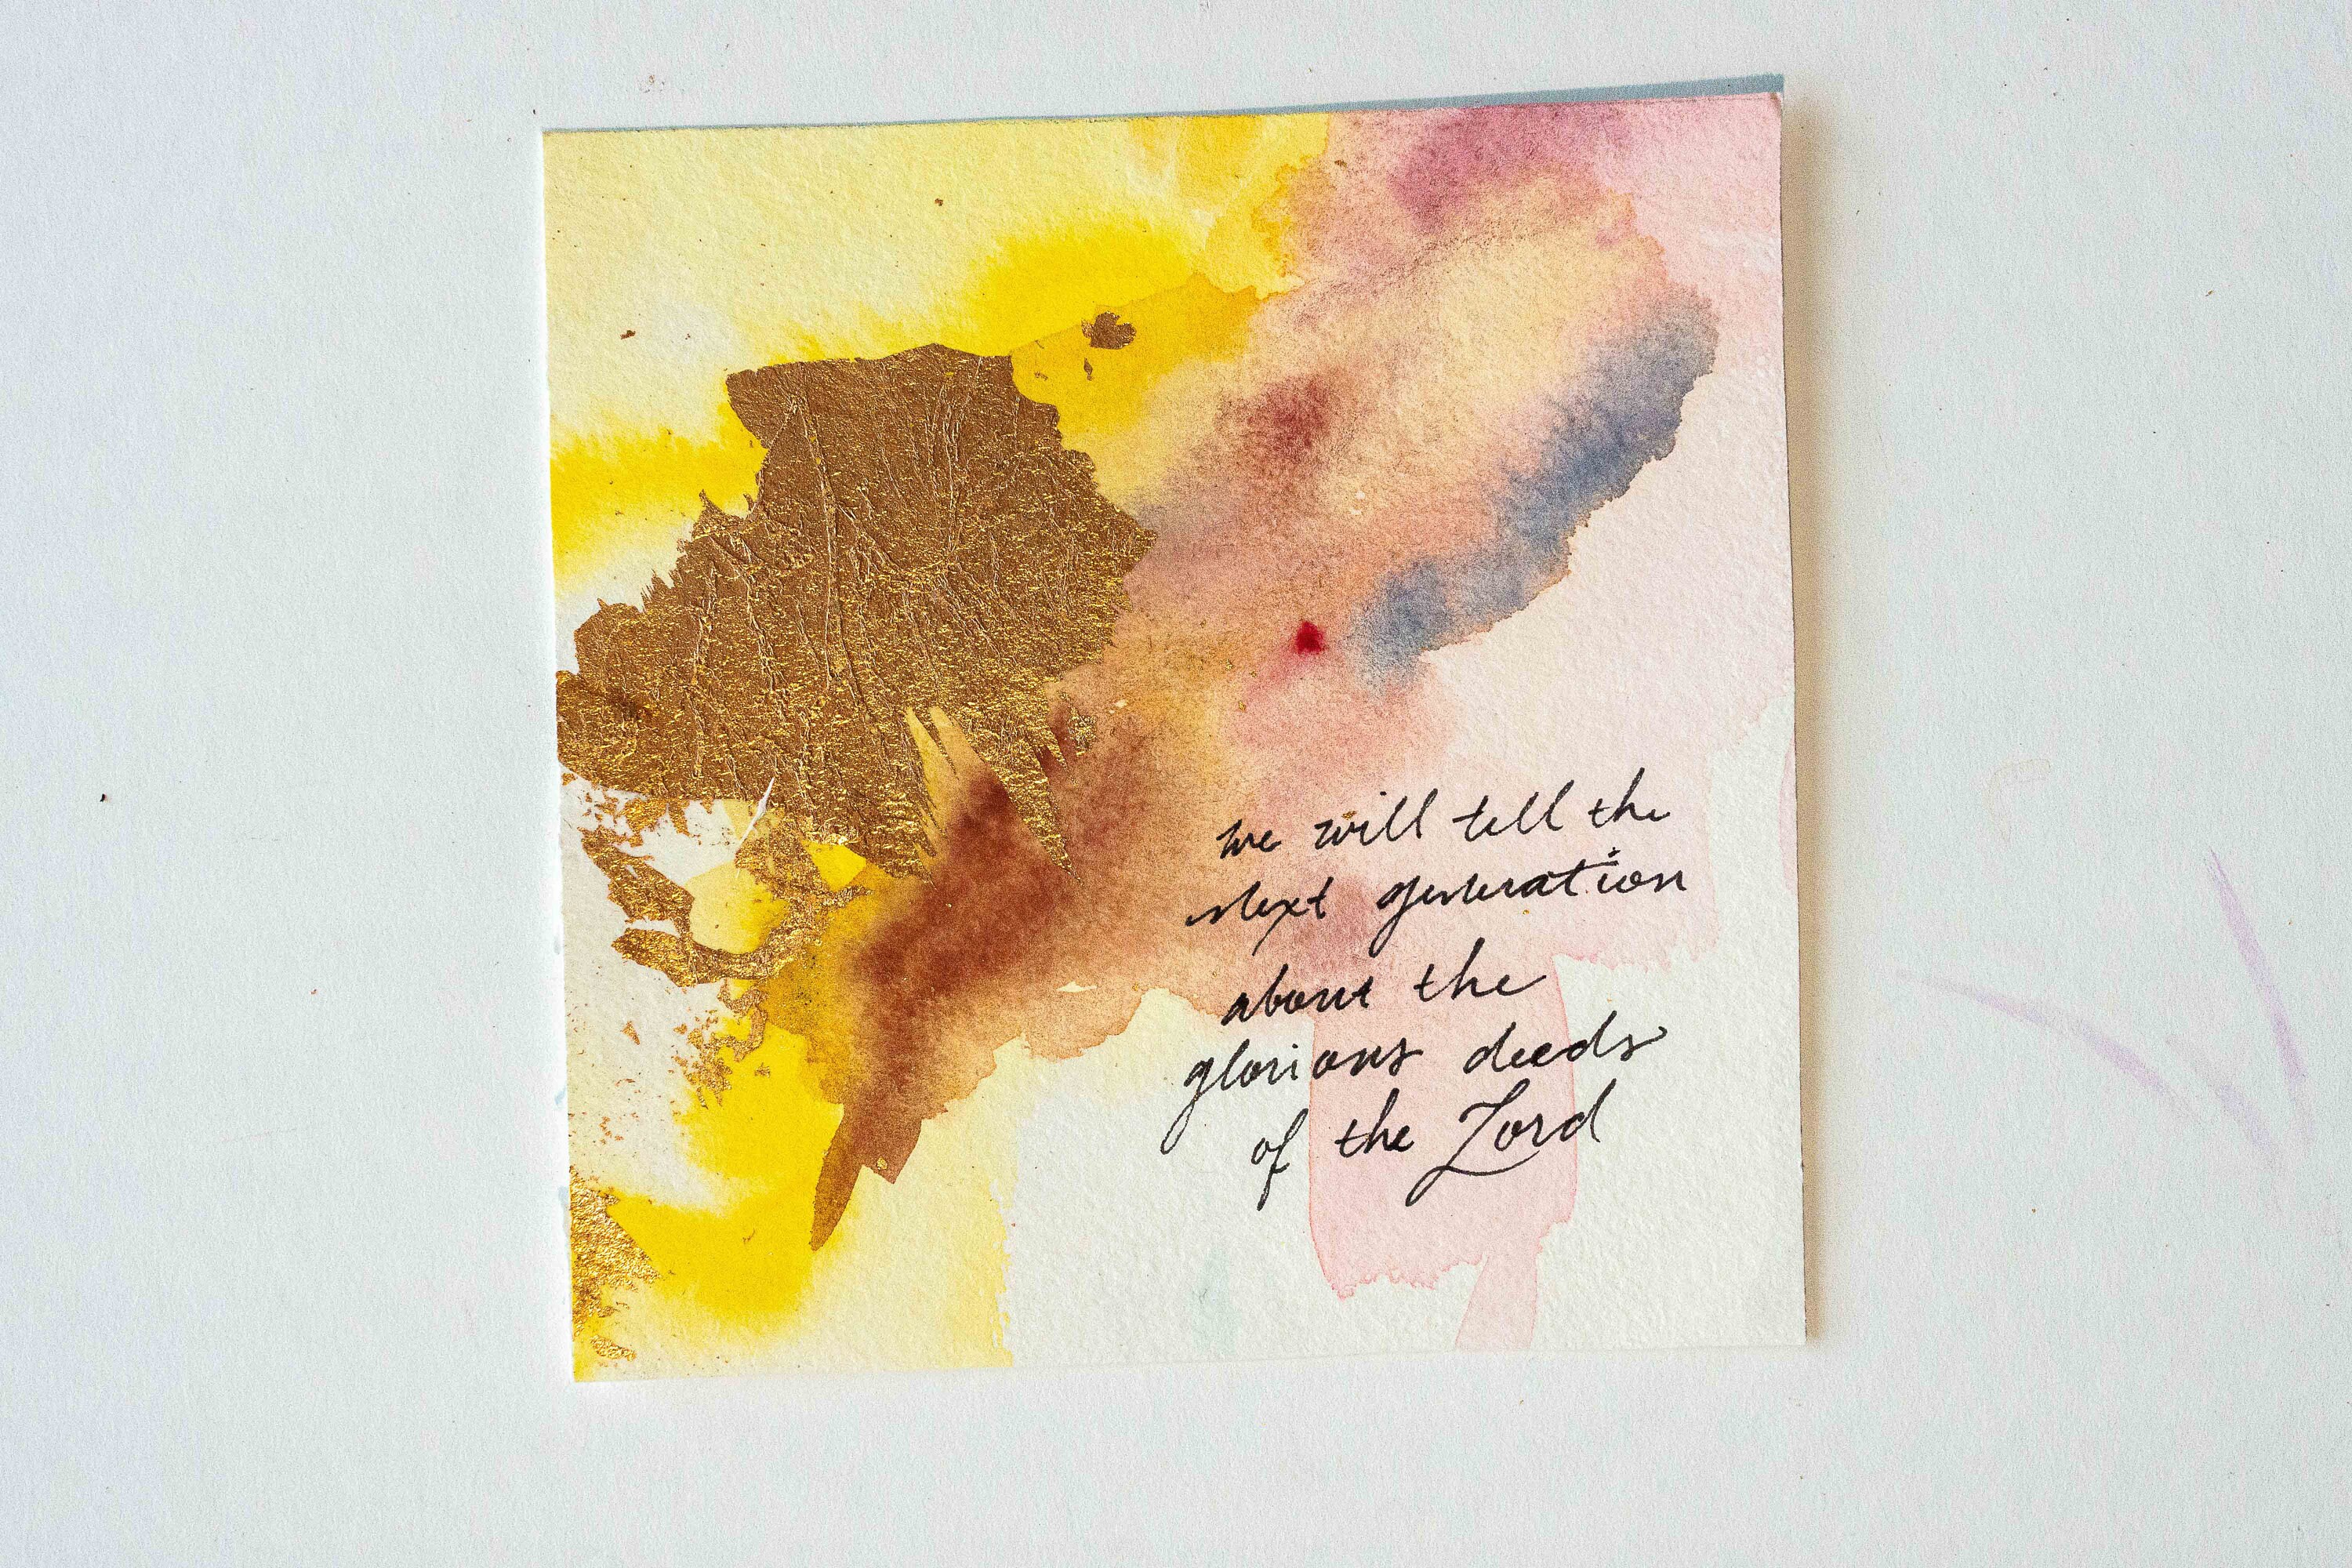 we will tell the
next generation
about the
glorious deeds
of the Lord